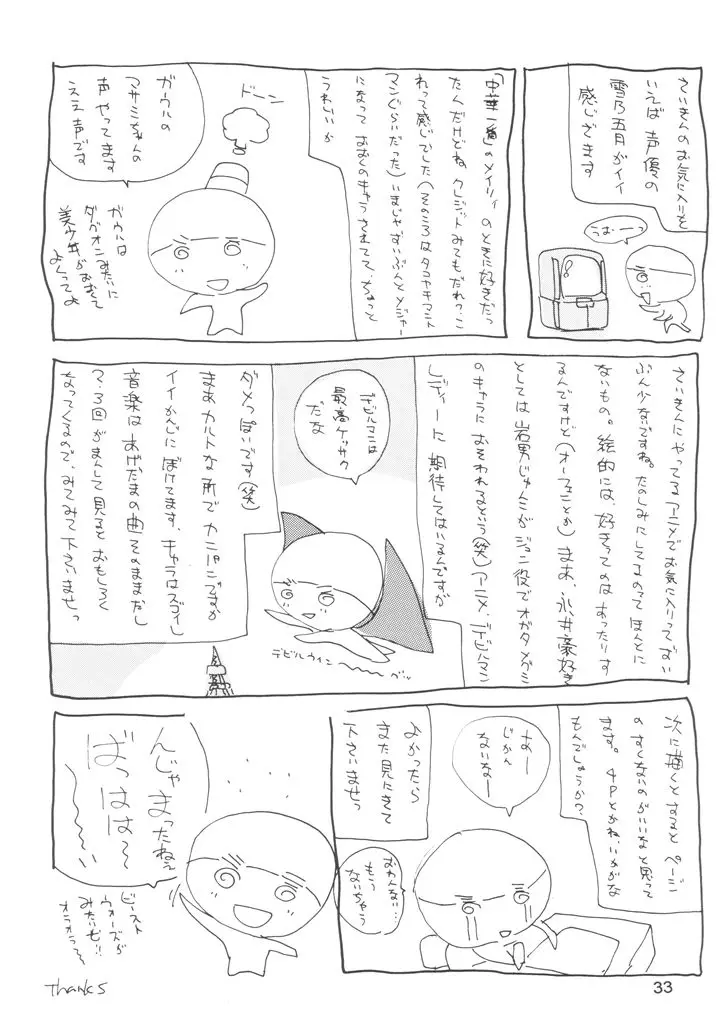 さいきんのお気に入りと
いえば 声優の
雪乃五月がイイ
感じざます
うおーっ
「中華一番」のメイリィ のときに好きだっ
たんだけどね クレジットみてもだれ?こ
れって感じでした(そのころはタコヤキマント
マンぐらいだった)いまじゃずいぶんとメジャー
になって おおくのキャラされてて、ちょっと
うれしいか
ドーン
ガウルの
マサミちゃんの
声やってます
ええ声です
ガウルは
ダグオンみたいに
美少年がおおくて
よくってよ
さいきんにやってるアニメでお気に入りって ずい
ぶん少ないですね。たのしみにしてるのって ほんとに
ないもの。絵的には、好きってのは あったりす
るんですけど(オーフェンとか) まあ、永井豪好き
としては 岩男じゅんこが ジュン役で オガタメグミ
のキャラに おそわれるという(笑)アニメ、デビルマン
レディーに 期待してはいるんですが
デビルマンは
最高ケッサク
だな
ダメっぽいです(笑)
まあ カルトな所で カンパニですが
イイかんじに ぼけてます。キャラはスゴイし
音楽は あげだまの曲 そのままだし
2・3回がまんして見ると おもしろく
なってくるので、みてみて下さいませっ
デビルウイン〜〜
ゲッ
次に描くとすると ページ
の すくないのがいいなと思って
ます。4Pとかね、いかがな
もんでしょうか?
あー
じかん
ないなー
よかったら
また見にきて
下さいませっ
おわんない…
もう
ないちゃう
んじゃ まったねぇ
ばっはは〜
〜〜い
ビースト
ウォーズが
みたいぜ!!
オラオラっ〜
Thanks
33